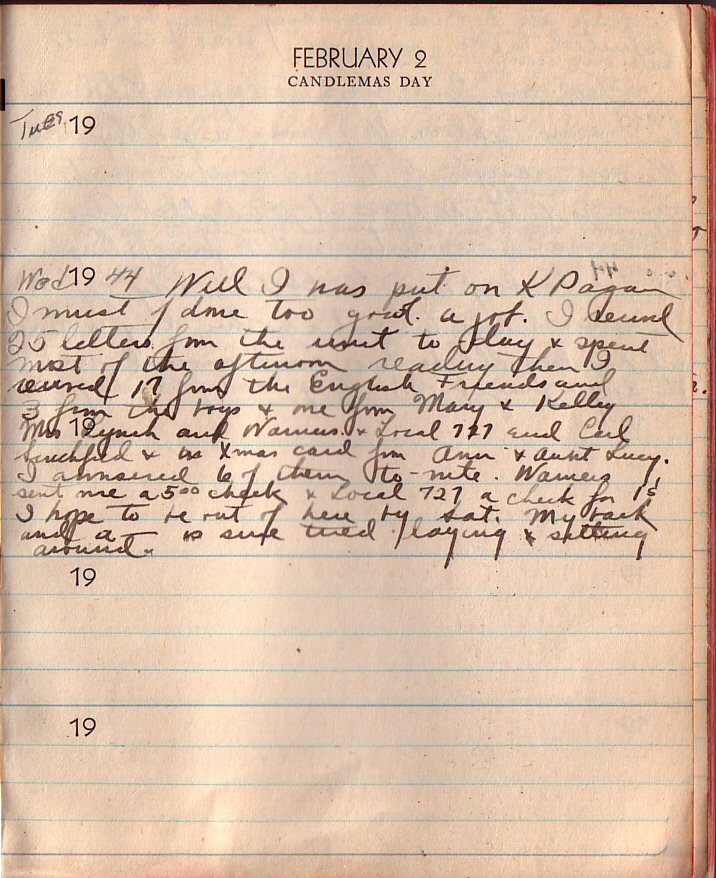 FEBRUARY 2
CANDLEMAS DAY
Tues 19
Wed 19 44 Well I was put on K P again
I must of done too good. a job. I received
25 letters from the unit to day & spent
most of the afternoon reading them I
received 17 from the English Friends and
3 from the boys & one from Mary & Kelley
19
Mrs Lynch and Warners & Local 727 and Carl
& an Xmas card from Ann & Aunt Lucy.
I answered 6 of them to-nite. Warners
sent me a 5 00 check & Local 727 a check for 15
I hope to be out of here by Sat. My back
and a is sure tired laying & sitting
around.
19
19